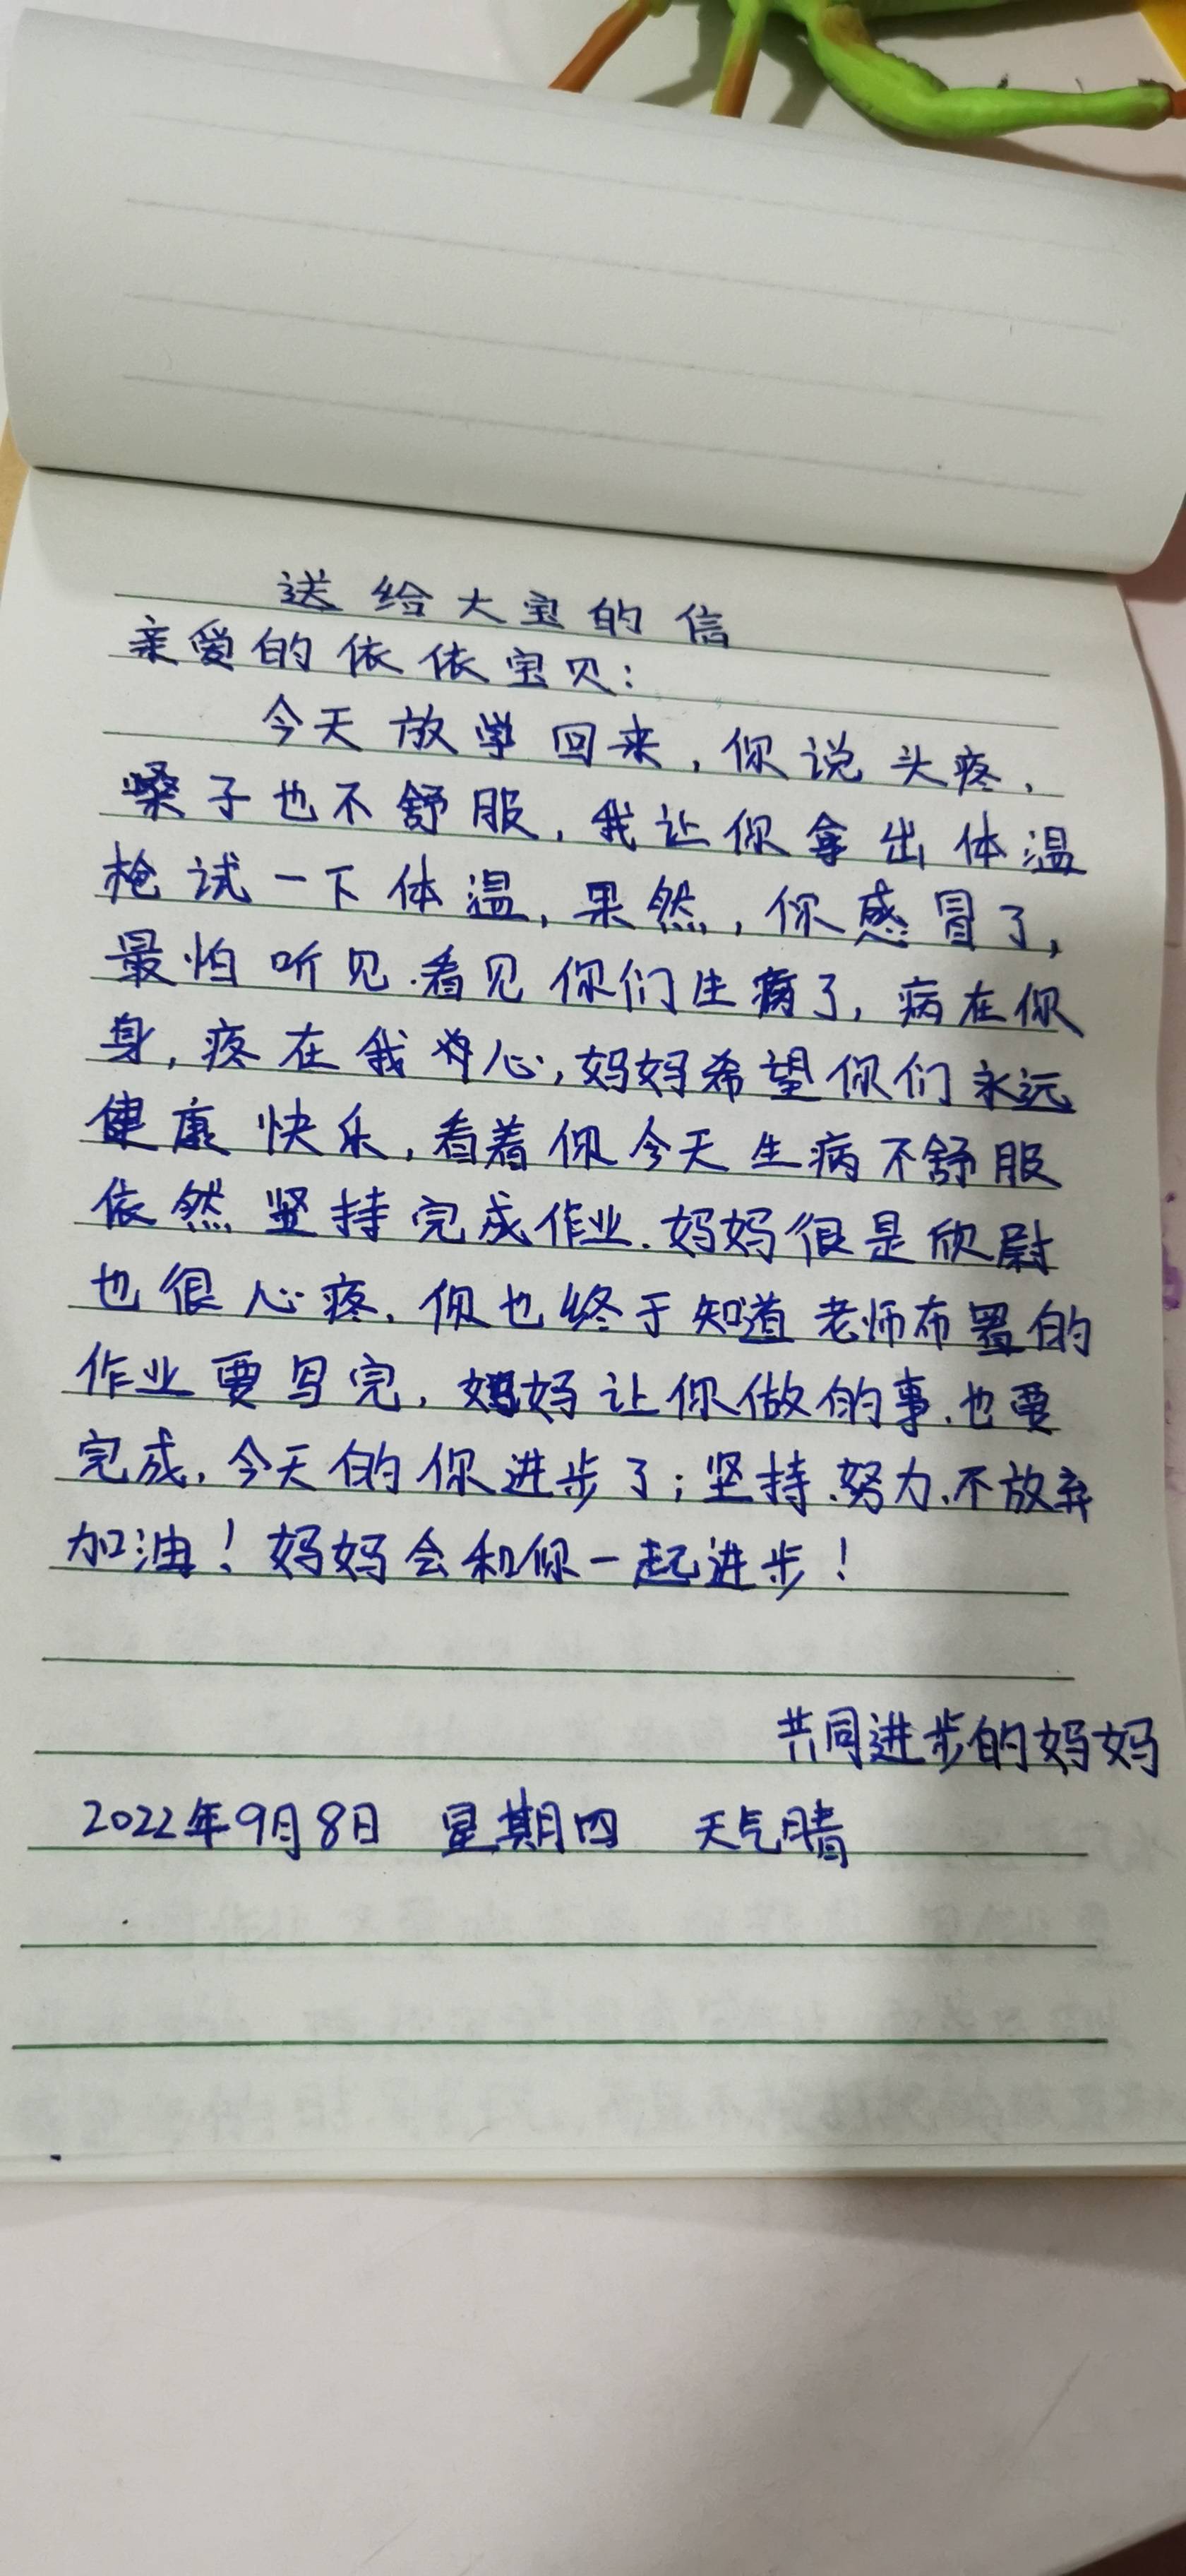 送给大宝的信
亲爱的依依宝贝：
今天放学回来，你说头疼，
嗓子也不舒服，我让你拿出体温
枪试一下体温，果然，你感冒了，
最怕听见.看见你们生病了，病在你
身，疼在我心，妈妈希望你们永远
健康快乐，看着你今天生病不舒服
依然坚持完成作业.妈妈很是欣尉
也很心疼.你也终于知道老师布置的
作业要写完，妈妈让你做的事.也要
完成.今天的你进步了；坚持.努力、不放弃
加油！妈妈会和你一起进步！
共同进步的妈妈
2022年9月8日 星期四 天气晴